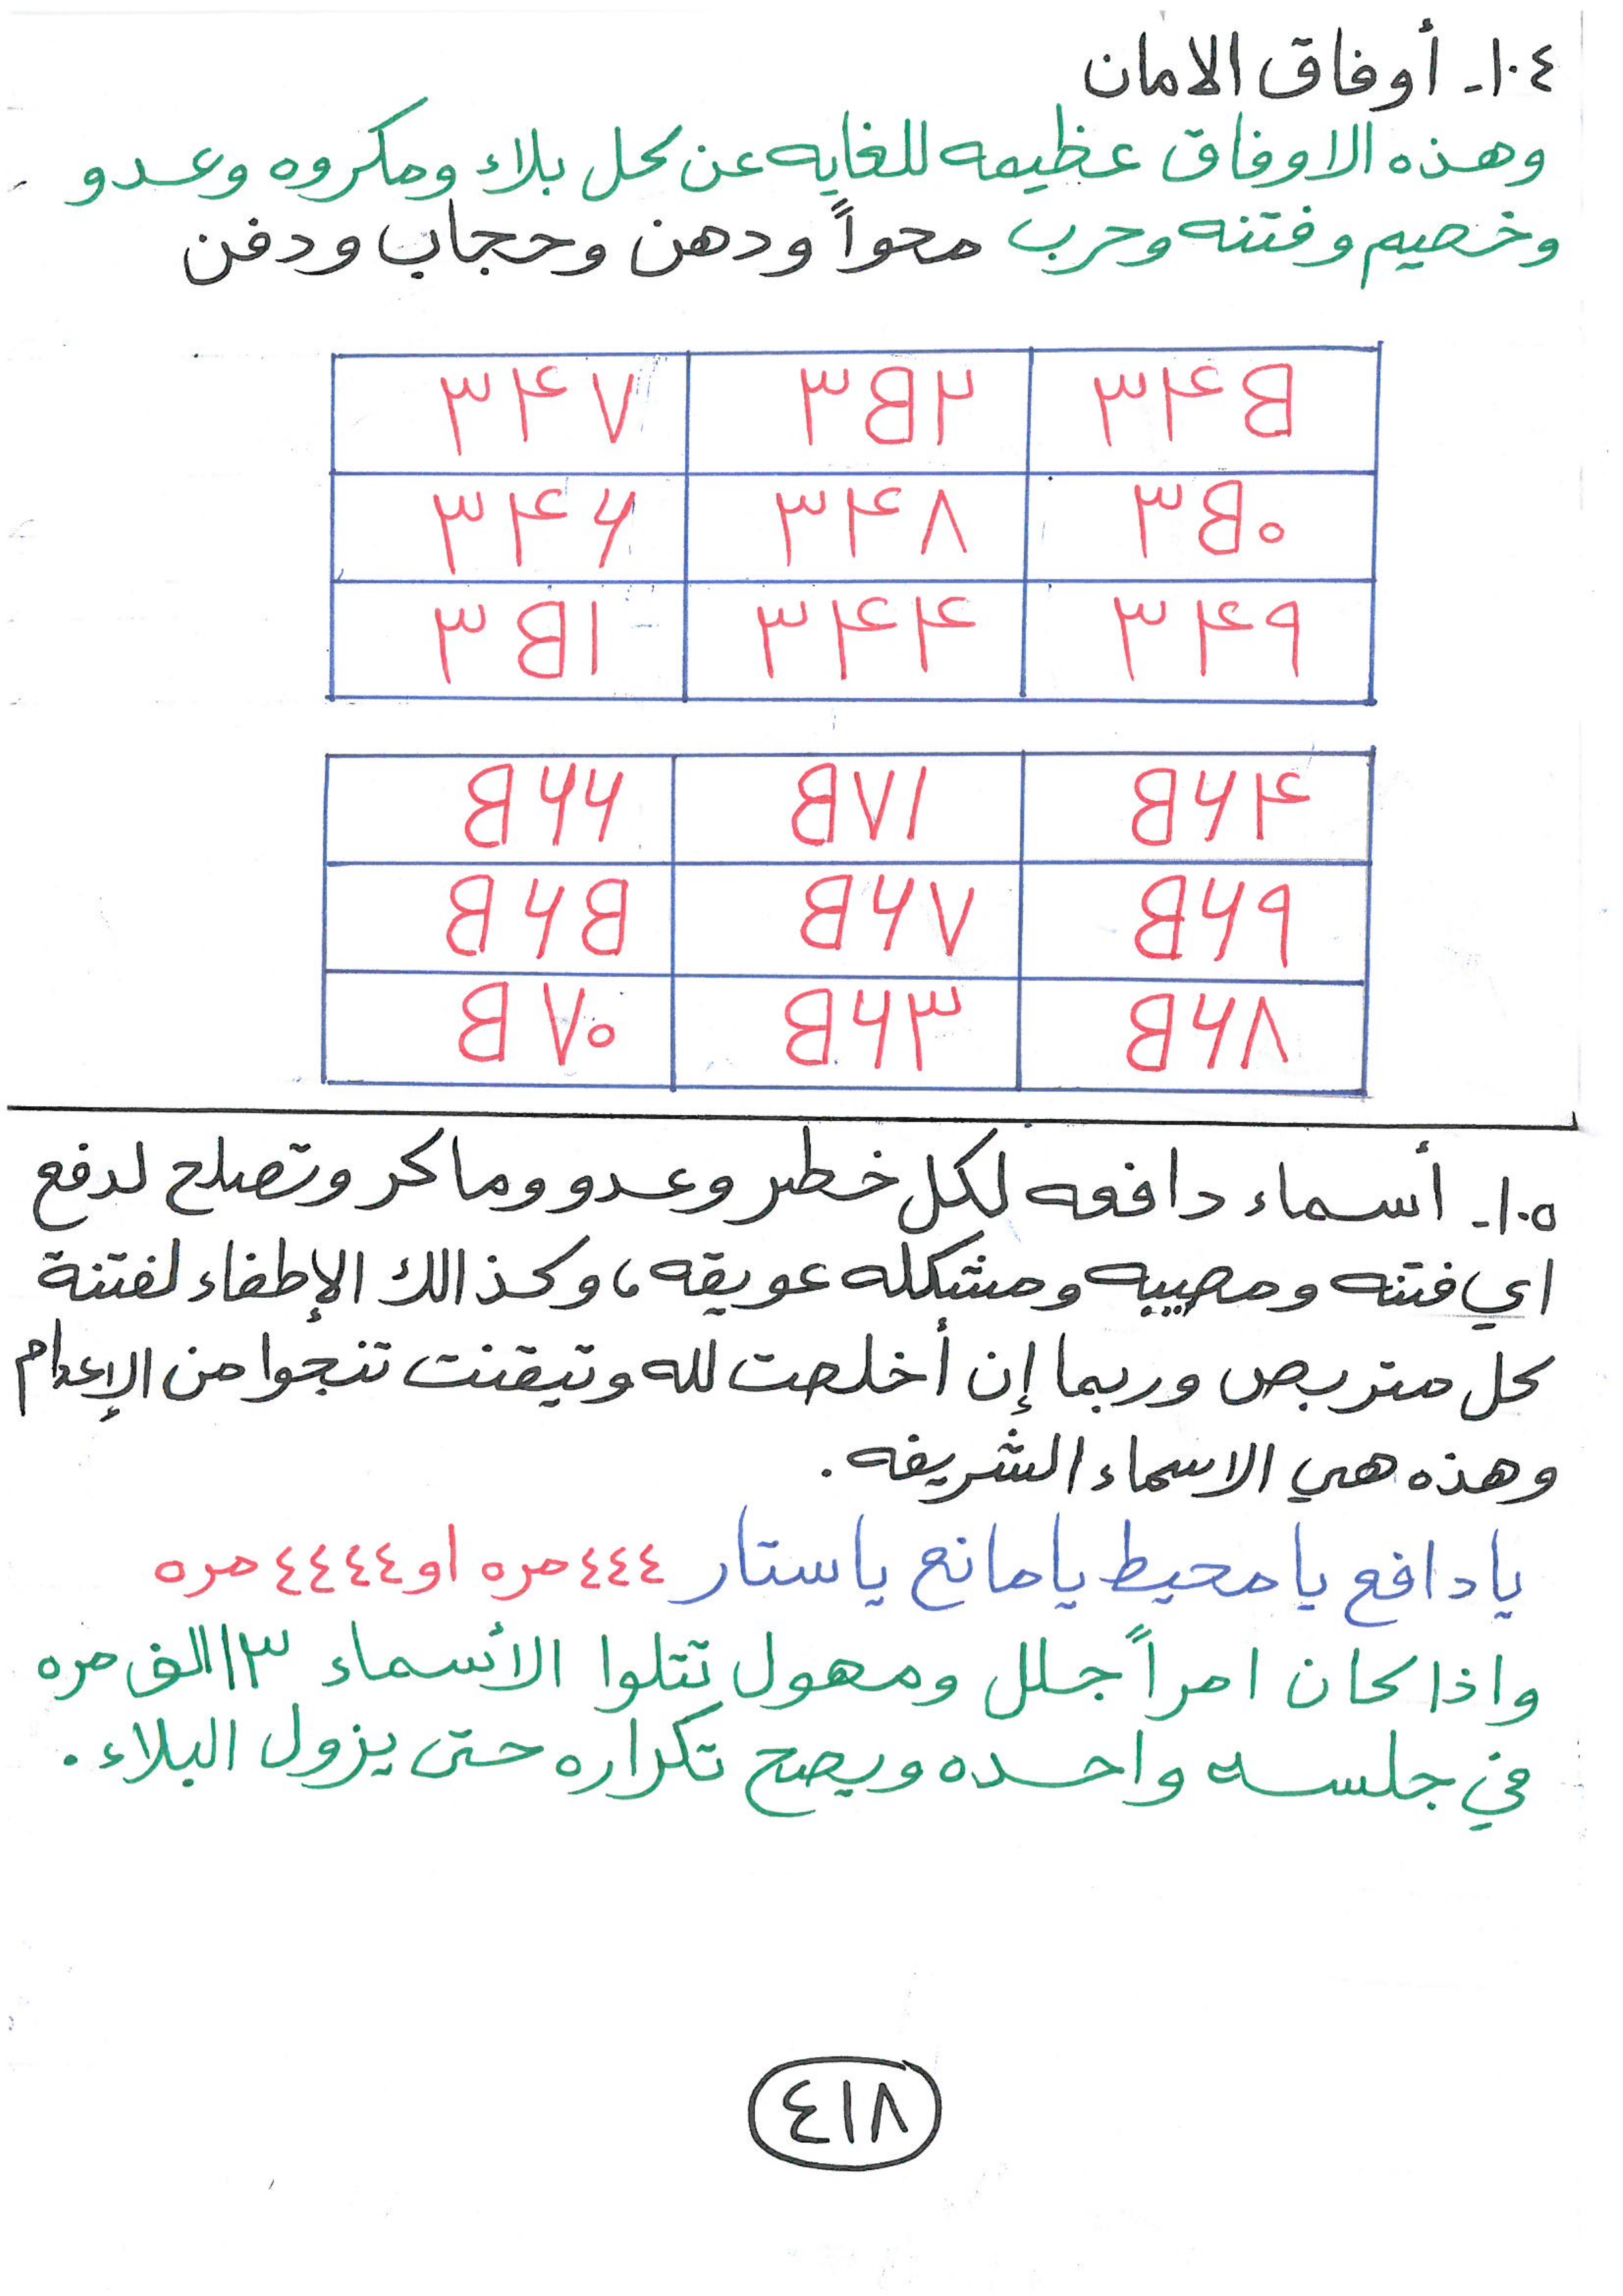 ١٠٤- أوفاق الامان
وهذه الاوفاق عظيمه للغايه عن كل بلاء ومكروه وعدو
وخصيم وفتنه وحرب محواً ودهن وحجاب ودفن
٣٤٥ ٣٥٢ ٣٤٧
٣٥٠ ٣٤٨ ٣٤٦
٣٤٩ ٣٤٤ ٣٥١
٥٦٤ ٥٧١ ٥٦٦
٥٦٩ ٥٦٧ ٥٦٥
٥٦٨ ٥٦٣ ٥٧٠
١٠٥- أسماء دافعه لكل خطر وعدو وماكر وتصلح لدفع
اي فتنه ومصيبه ومشكله عويقه، وكذالك الإطفاء لفتنة
كل متربص وربما إن أخلصت لله وتيقنت تنجوا من الإعدام
وهذه هي الاسماء الشريفه .
يادافع يامحيط يامانع ياستار ٤٤٤مره او ٤٤٤٤مره
واذا كان امراً جلل ومهول تتلوا الأسماء ١٣الف مره
في جلسه واحده ويصح تكراره حتى يزول البلاء .
٤١٨